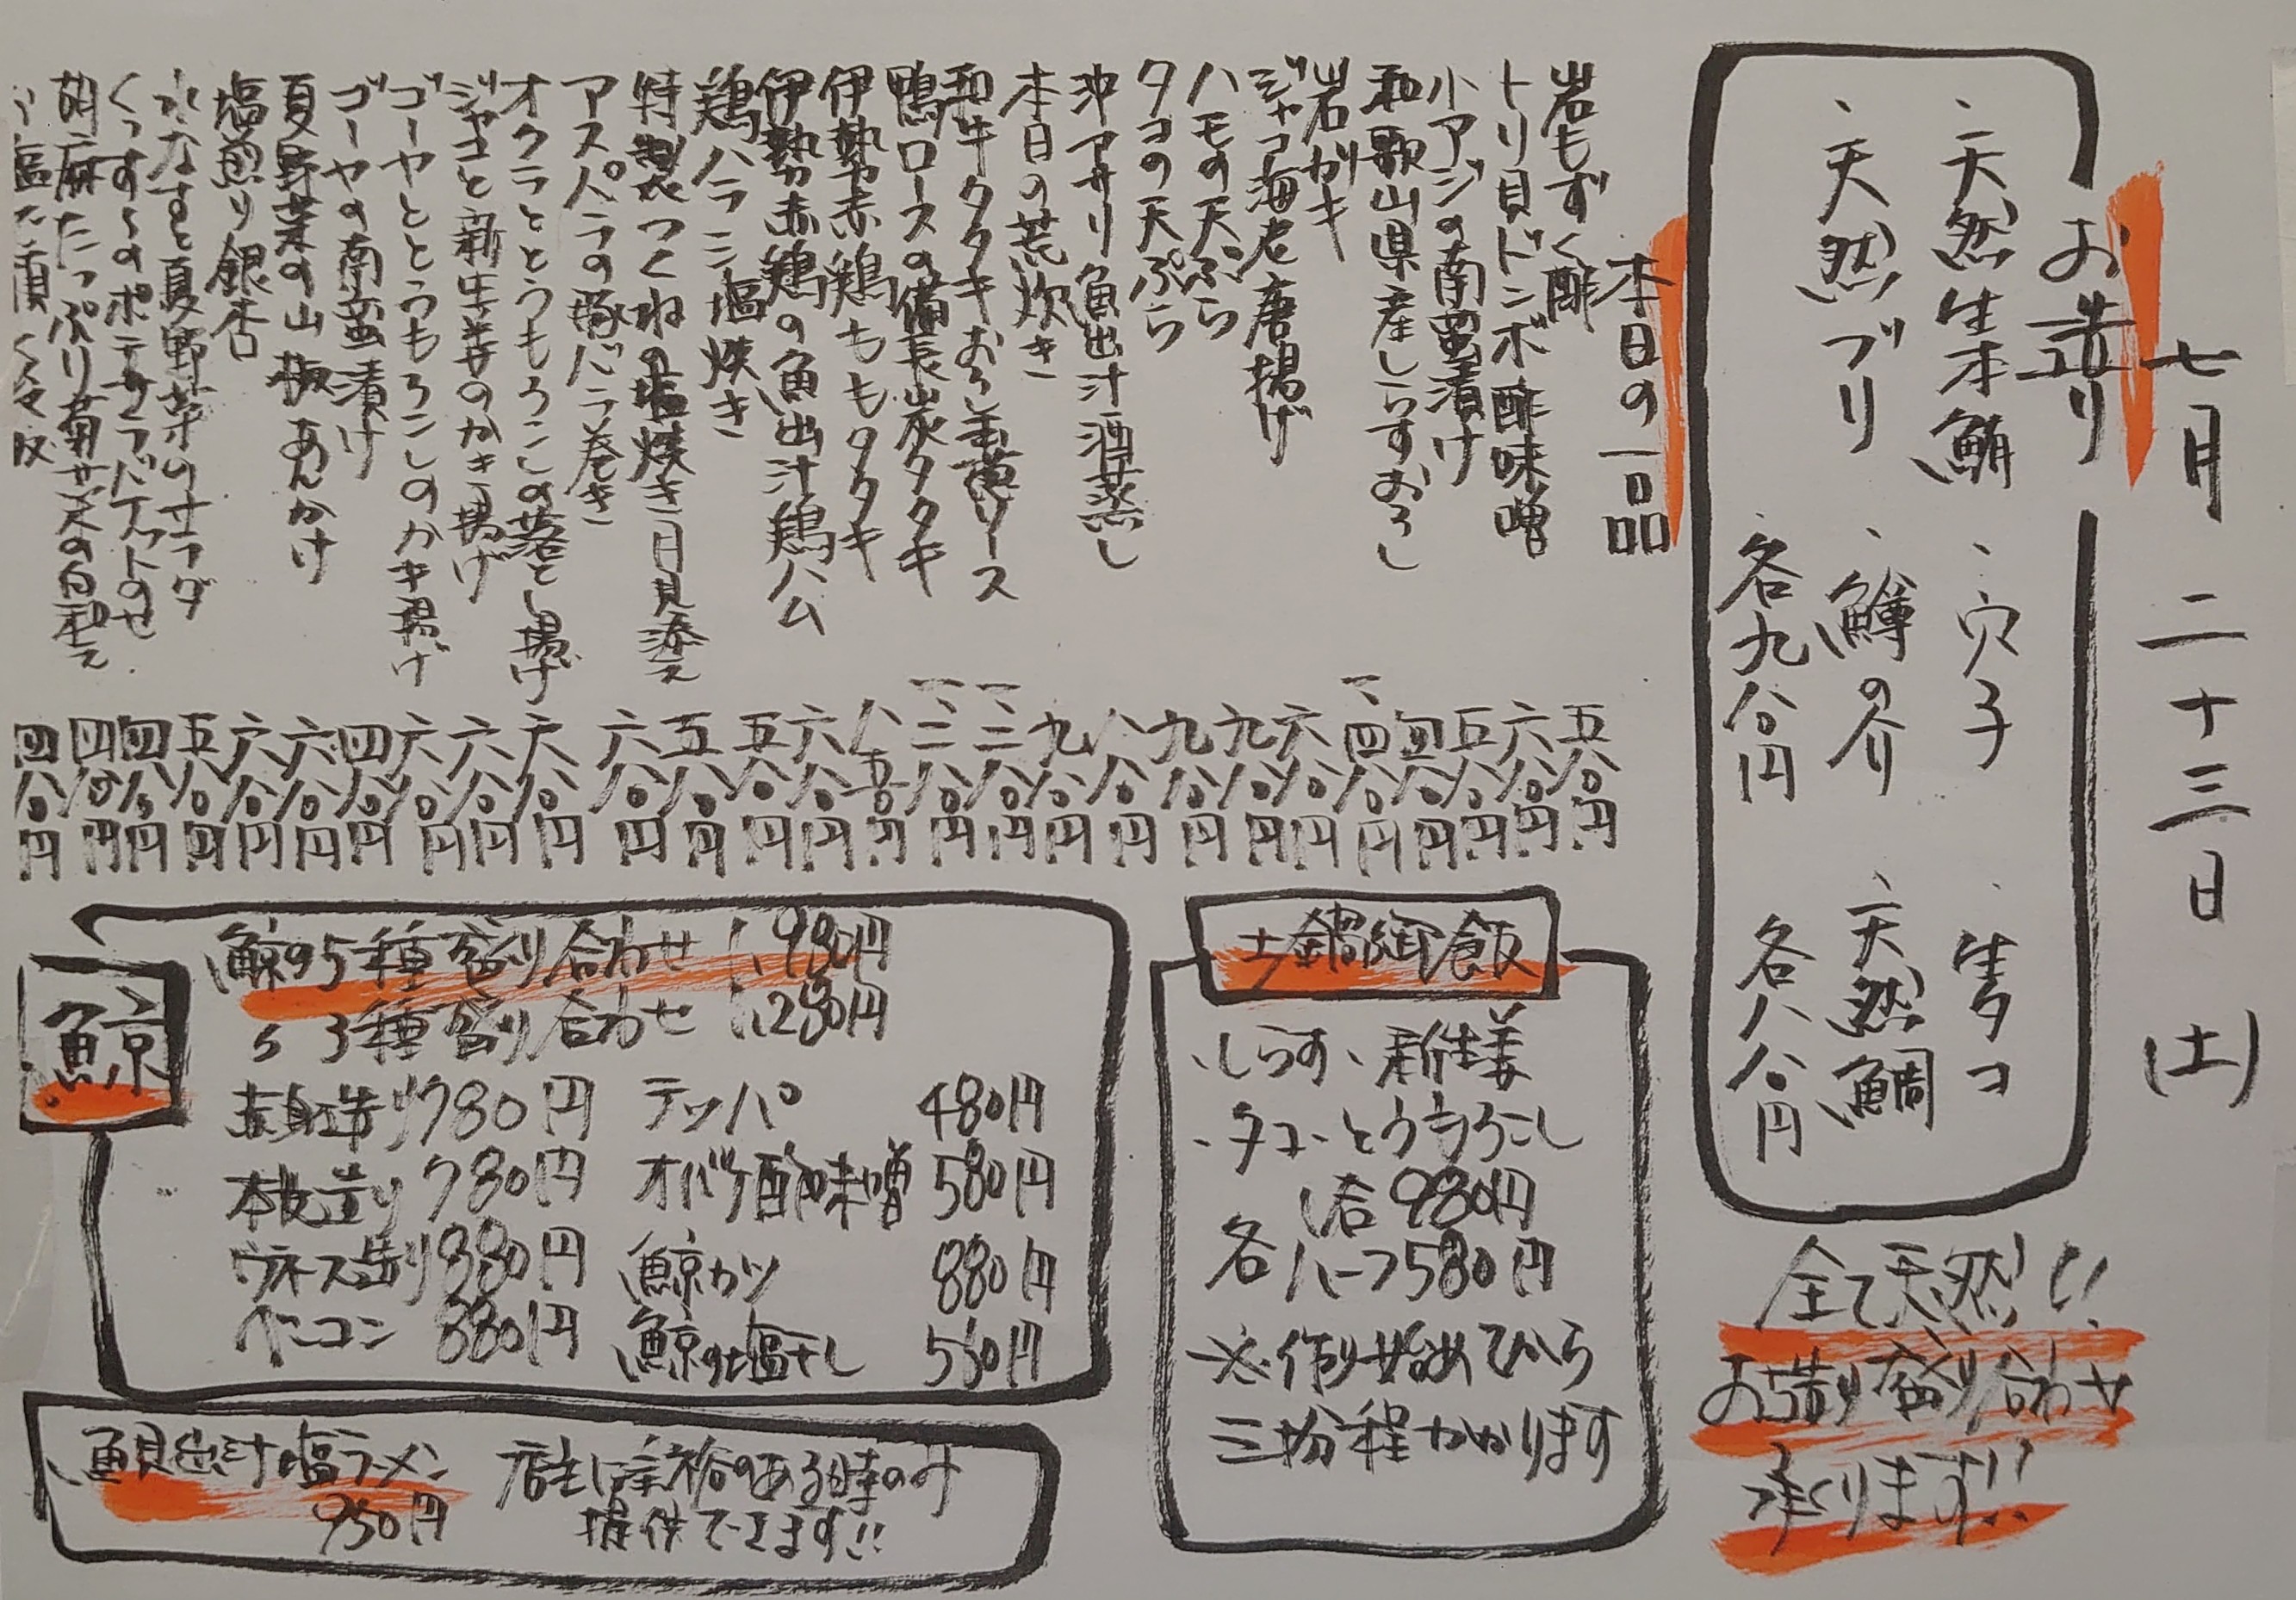 七月二十三日(土)
お造り
、天然生本鮪 、穴子 、生タコ
、天然ブリ 、鱒の介 、天然鯛
各九八〇円 各八八〇円
全て天然!!
お造り盛り合わせ
承ります!!
本日の一品
岩もずく酢 五八〇円
トリ貝ドンボ酢味噌 六八〇円
小アジの南蛮漬け 五八〇円
和歌山県産しらすおろし 四八〇円
岩がキ 一、四八〇円
ジャコ海老唐揚げ 六八〇円
ハモの天ぷら 九八〇円
タコの天ぷら 九八〇円
沖アサリ魚出汁酒蒸し 八八〇円
本日の荒炊き 九八〇円
和牛タタキおろし玉葱ソース 一、二八〇円
鴨ロースの備長炭タタキ 一、二八〇円
伊勢赤鶏ももタタキ 八五〇円
伊勢赤鶏の魚出汁鶏ハム 六八〇円
鶏ハラミ塩焼き 五八〇円
特製つくねの塩焼き月見添え 五八〇円
アスパラの豚バラ巻き 六八〇円
オクラととうもろこしの落とし揚げ 六八〇円
ジャコと新生姜のかき揚げ 六八〇円
ゴーヤととうもろこしのかキ揚げ 六八〇円
ゴーヤの南蛮漬け 四八〇円
夏野菜の山椒あんかけ 六八〇円
塩煎り銀杏 六八〇円
水なすと夏野菜のサラダ 五八〇円
くっすくのポテサラバケットのせ 四八〇円
胡麻たっぷり菊菜の白和え 四八〇円
四八〇円
土鍋御飯
、しらす、新生姜
、タコ、とうもろこし
一合980円
各ハーフ580円
※作り始めてから
三十分程かかります
鯨
鯨の5種盛り合わせ 1,980円
〃 3種盛り合わせ 1,280円
赤身造り780円 テッパ 480円
本皮造り780円 オバケ酢味噌 580円
ウネス造り880円 鯨カツ 880円
ベーコン 880円 鯨の塩干し 580円
、鯛出汁塩ラーメン
950円
店主に余裕のある時のみ
提供できます!!